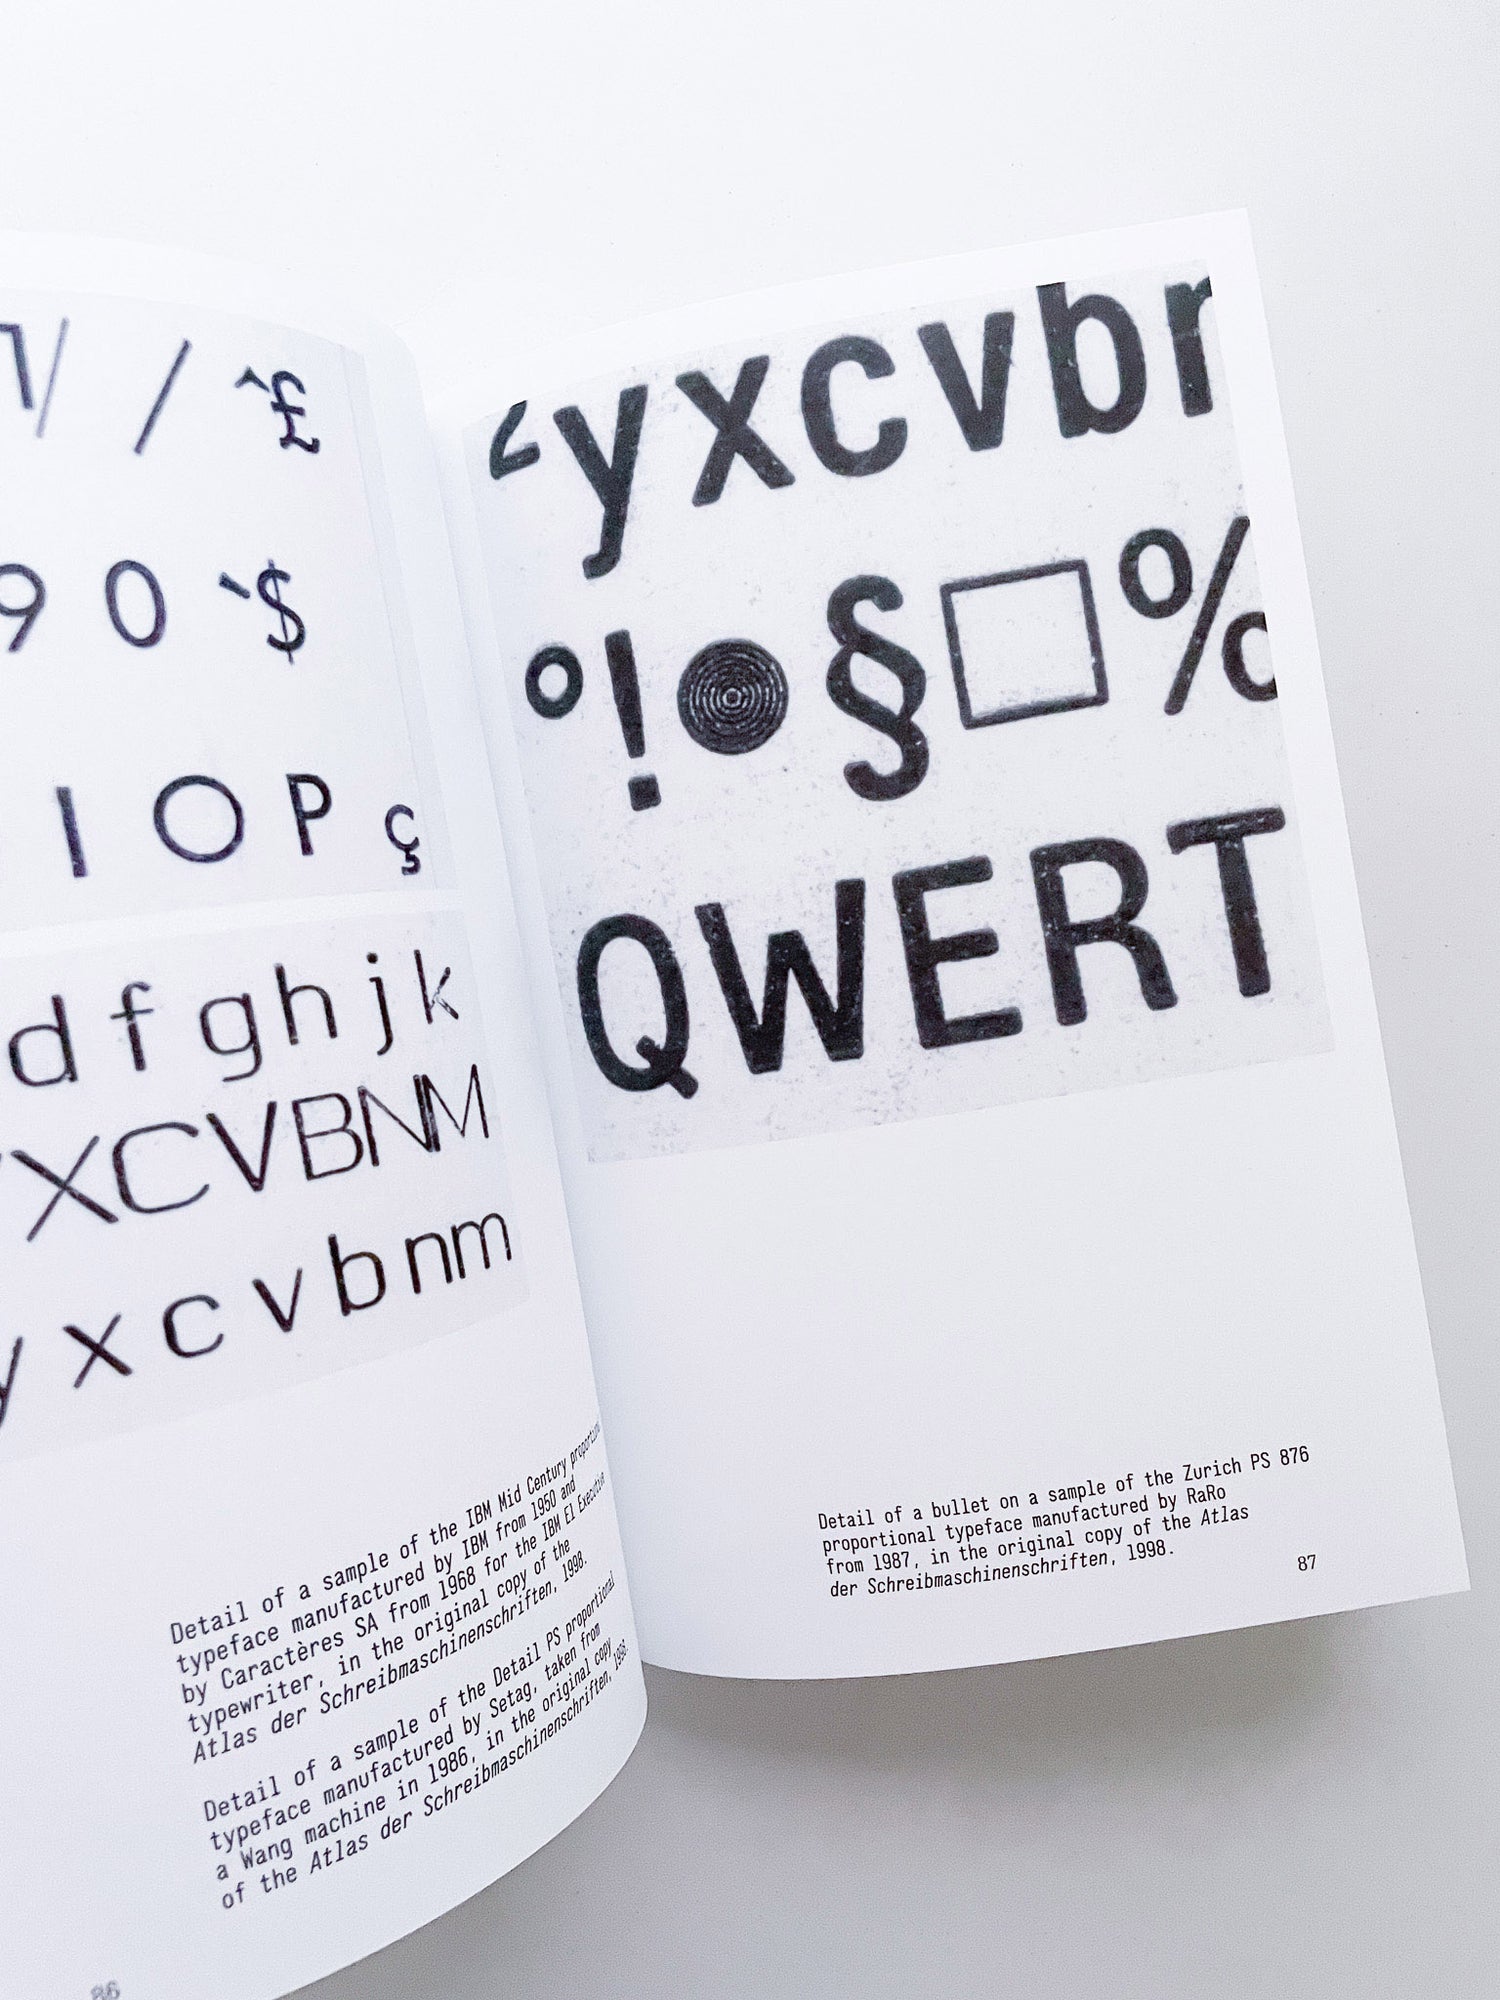 / / ^£
9 0 `$
I O P ç
d f g h j k
X C V B N M
y x c v b n m
Detail of a sample of the IBM Mid Century proportional
typeface manufactured by IBM from 1950 and
by Caractères SA from 1968 for the IBM El Executive
typewriter, in the original copy of the
Atlas der Schreibmaschinenschriften, 1998.
Detail of a sample of the Detail PS proportional
typeface manufactured by Setag, taken from
a Wang machine in 1986, in the original copy
of the Atlas der Schreibmaschinenschriften, 1998.
86
yxcvb
°!●§□%
QWERT
Detail of a bullet on a sample of the Zurich PS 876
proportional typeface manufactured by RaRo
from 1987, in the original copy of the Atlas
der Schreibmaschinenschriften, 1998.
87